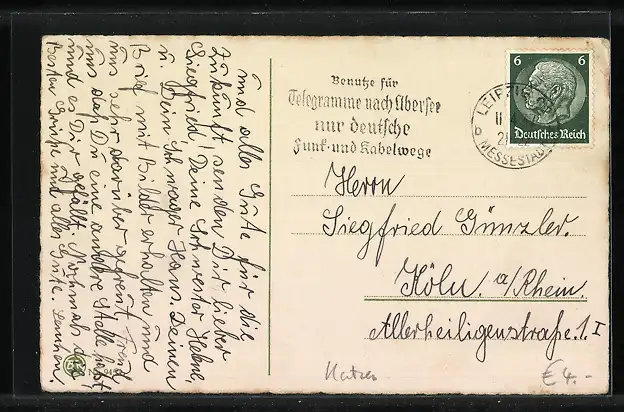 und alles Gute für die
Zukunft senden Dir lieber
Siegfried! Deine Schwester Helene,
u. Dein Schwager Hans. Deinen
Brief mit Bilder erhalten und
uns sehr darüber gefreut, freut
uns daß Du eine andere Stelle hast,
und es Dir gefällt. Nochmals die
Besten Grüße und alles Gute.
Benutze für
Telegramme nach Übersee
nur deutsche
Funk- und Kabelwege
LEIPZIG
MESSESTADT
6 6
Deutsches Reich
Herrn
Siegfried Günzler.
Köln. a/Rhein.
Allerheiligenstraße. 1. I
€ 4.-